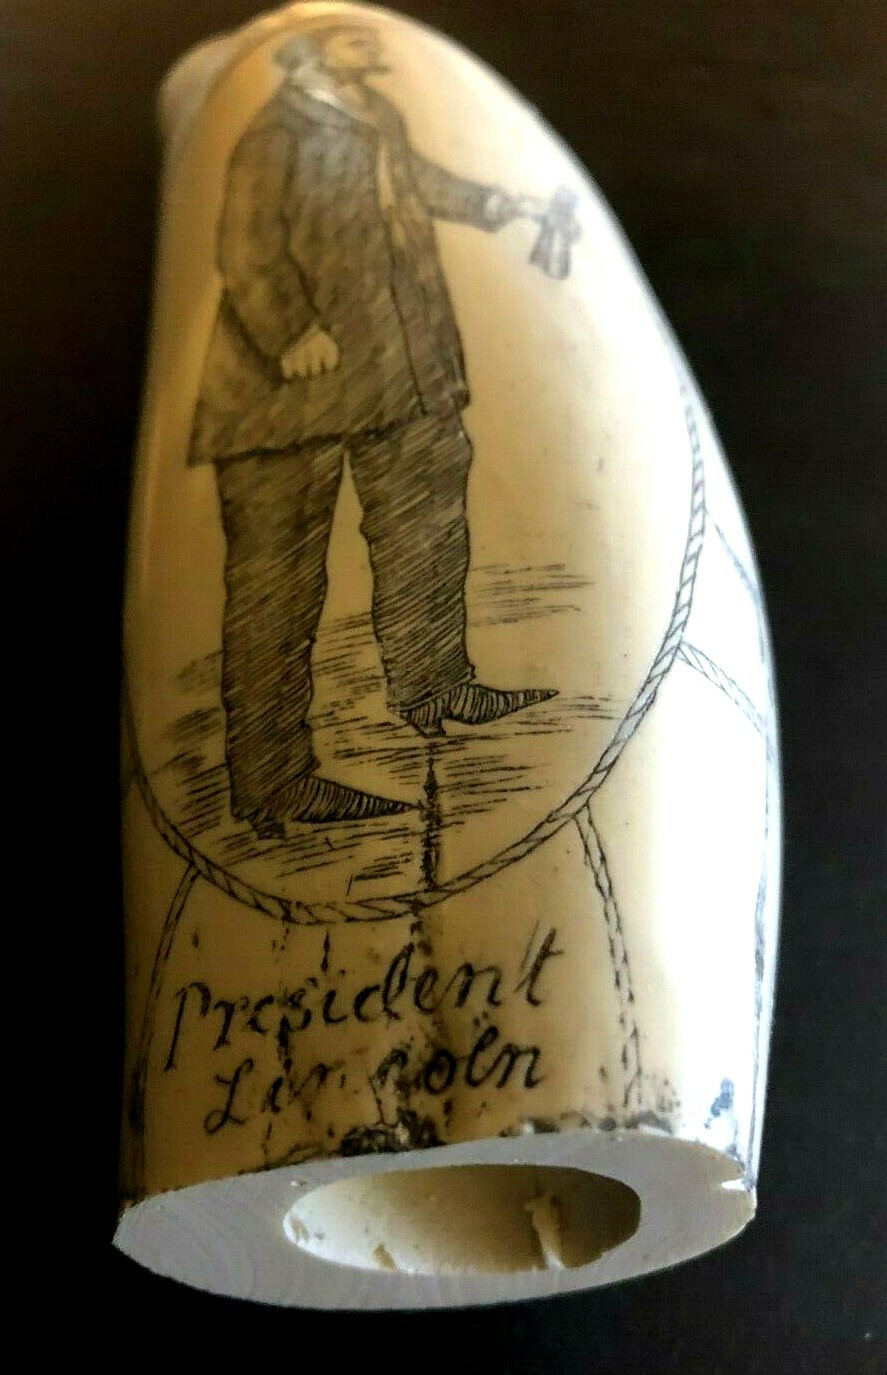 President
Lincoln